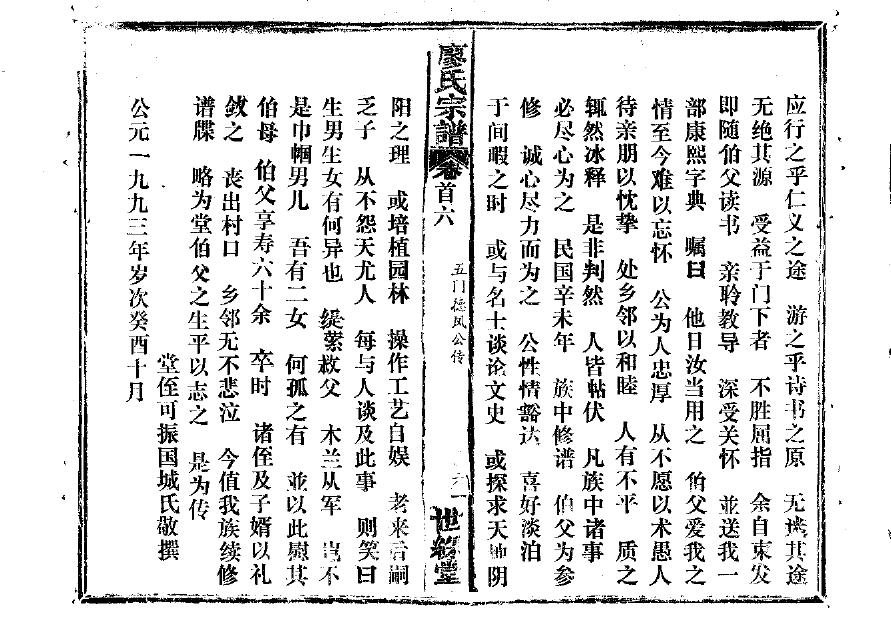 应行之乎仁义之途　游之乎诗书之原　无迷其途
无绝其源　受益于门下者　不胜屈指　余自束发
即随伯父读书　亲聆教导　深受关怀　並送我一
部康熙字典　嘱曰　他日汝当用之　伯父爱我之
情至今难以忘怀　公为人忠厚　从不愿以术愚人
待亲朋以忱挚　处乡邻以和睦　人有不平　质之
辄然冰释　是非判然　人皆帖伏　凡族中诸事
必尽心为之　民国辛未年　族中修谱　伯父为参
修　诚心尽力而为之　公性情豁达　喜好淡泊
于间暇之时　或与名士谈论文史　或探求天地阴
廖氏宗谱　卷首六　五门德凤公传　世𬘬堂
阳之理　或培植园林　操作工艺自娱　老来后嗣
乏子　从不怨天尤人　每与人谈及此事　则笑曰
生男生女有何异也　缇萦救父　木兰从军　岂不
是巾帼男儿　吾有二女　何孤之有　並以此慰其
伯母　伯父享寿六十余　卒时　诸侄及子婿以礼
敛之　丧出村口　乡邻无不悲泣　今值我族续修
谱牒　略为堂伯父之生平以志之　是为传
堂侄可振国城氏敬撰
公元一九九三年岁次癸酉十月